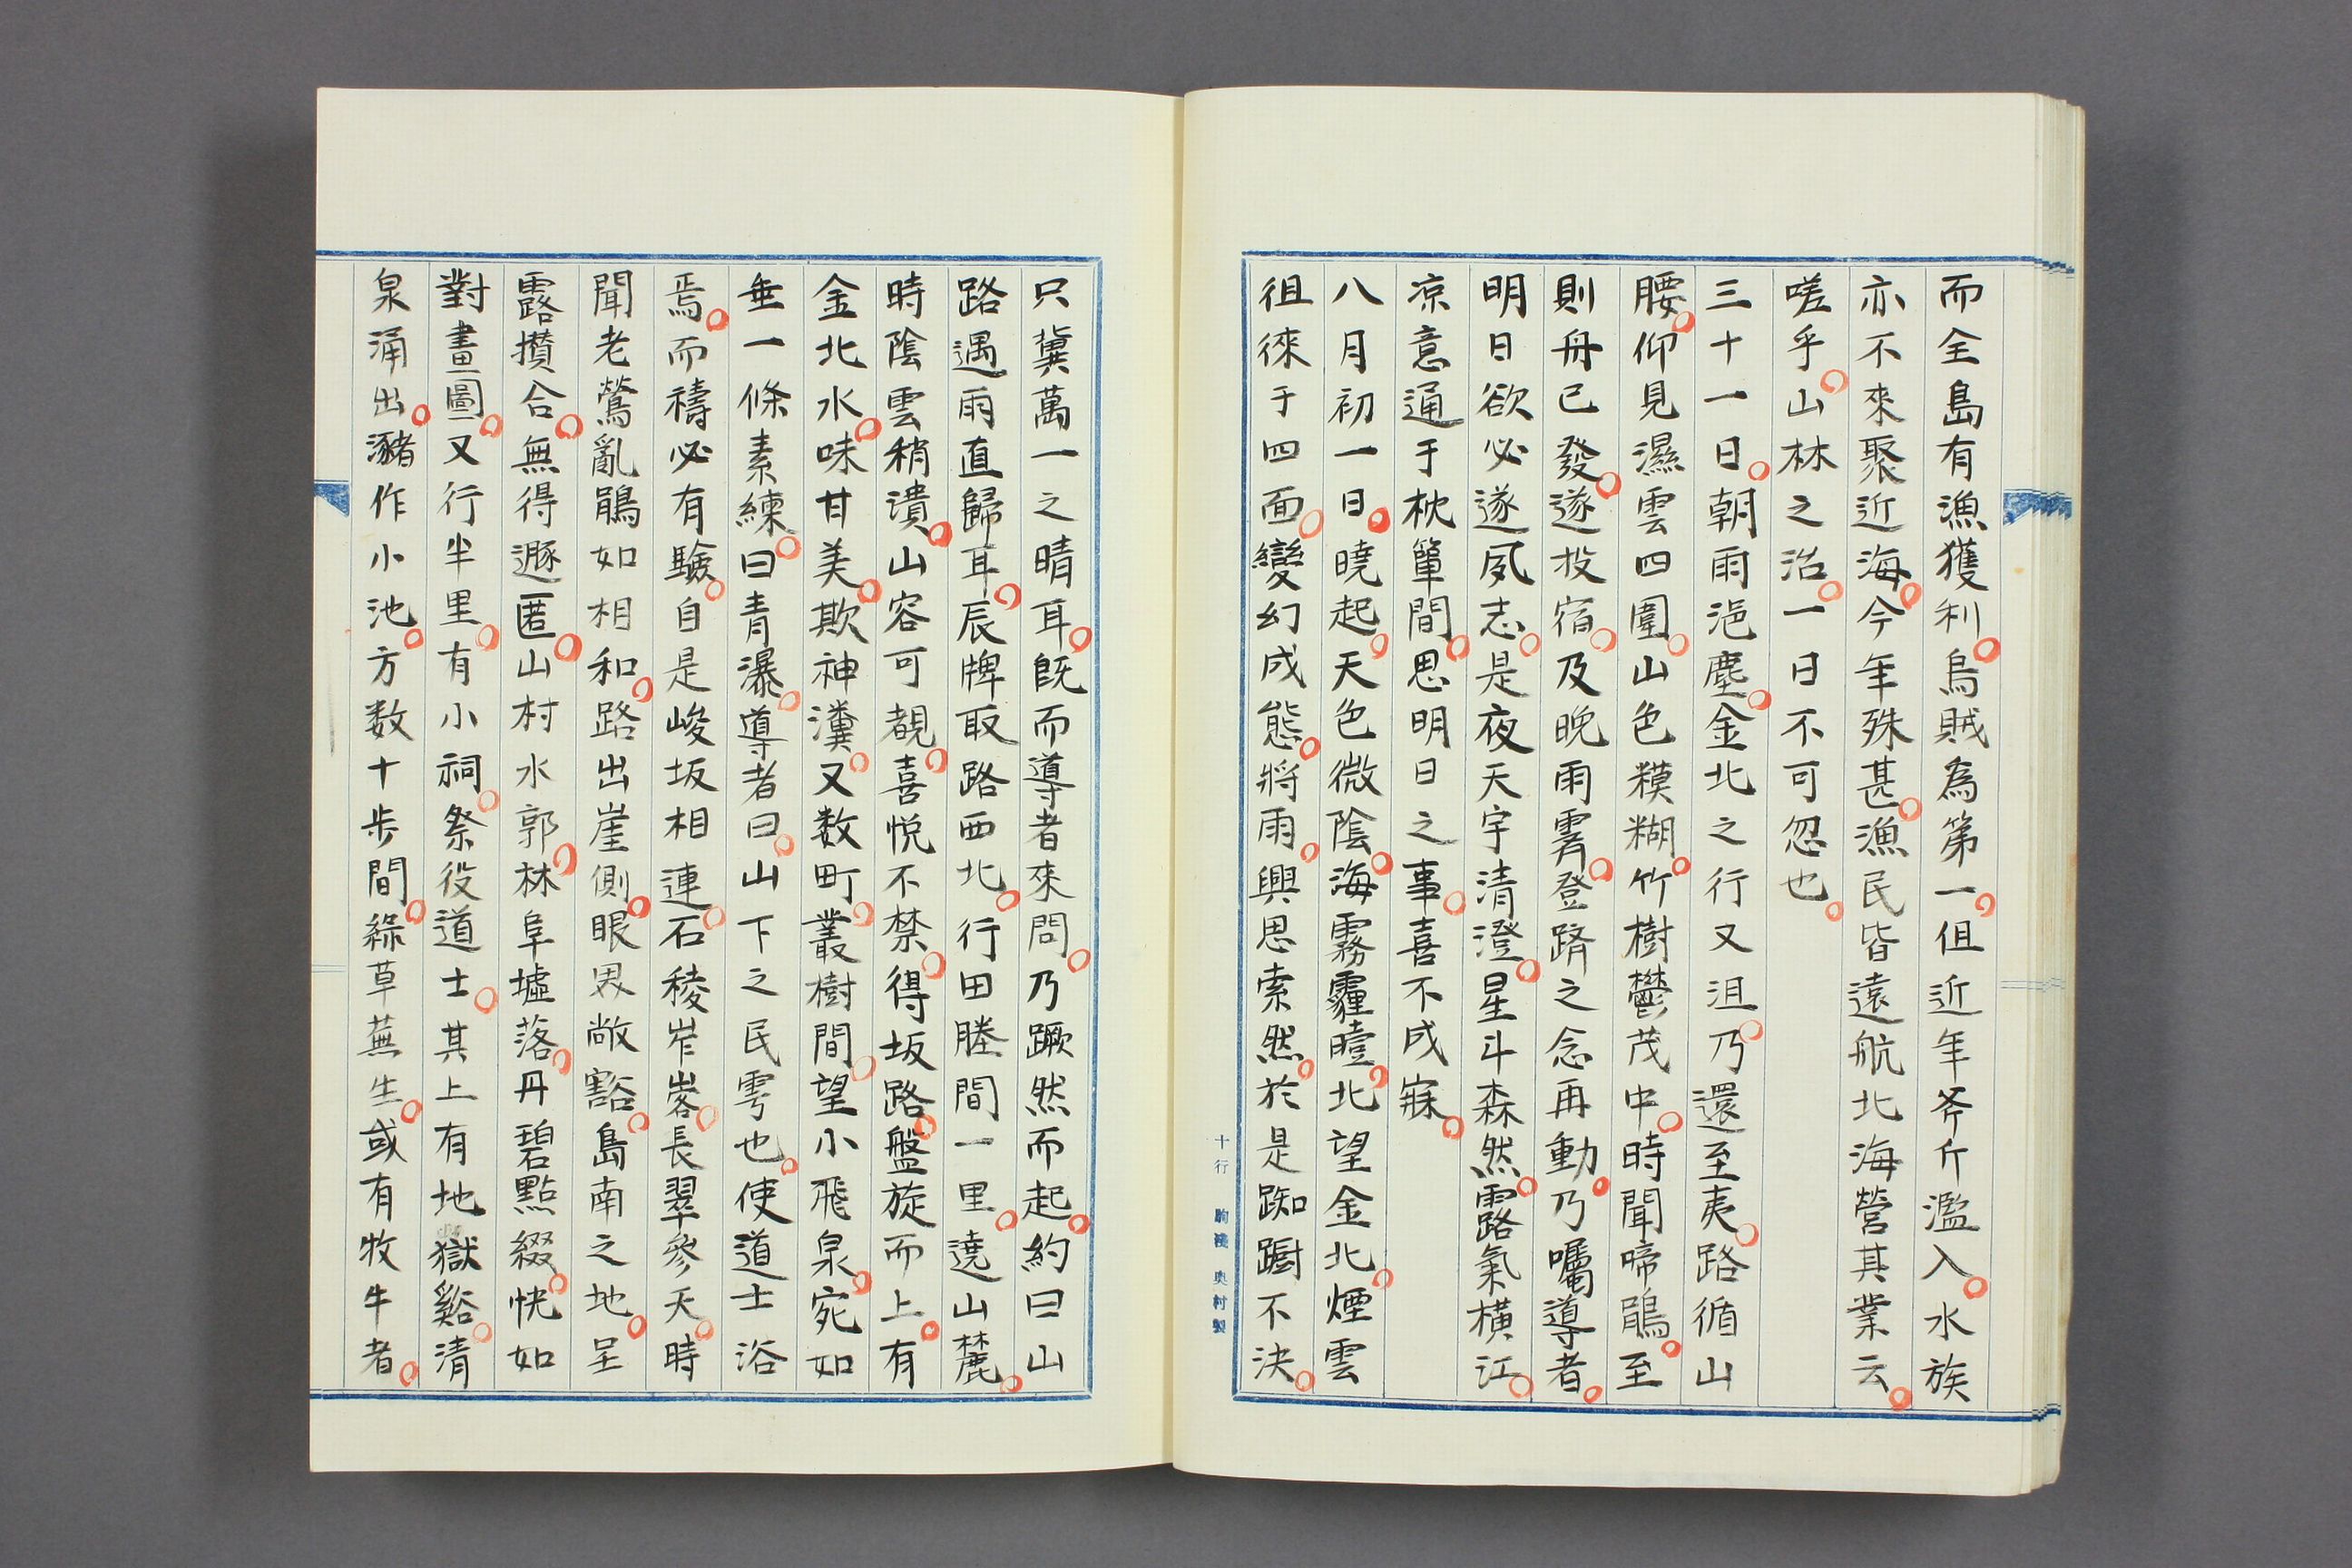 而全島有漁獲利。烏賊為第一。但近年斧斤濫入。水族
亦不來聚近海。今年殊甚。漁民皆遠航北海營其業云。
嗟乎。山林之治。一日不可忽也。
三十一日。朝雨浥塵。金北之行又沮。乃還至夷。路循山
腰。仰見濕雲四圍。山色糢糊。竹樹鬱茂中。時聞啼鵑。至
則舟已發。遂投宿。及晚雨霽。登躋之念再動。乃囑導者。
明日欲必遂夙志。是夜天宇清澄。星斗森然。露氣橫江。
凉意通于枕簟間。思明日之事。喜不成寐。
八月初一日。曉起。天色微陰。海霧霾曀。北望金北。煙雲
徂徠于四面。變幻成態。將雨。興思索然。於是踟躕不決。
只冀萬一之晴耳。既而導者來問。乃蹶然而起。約曰山
路遇雨直歸耳。辰牌取路西北。行田塍間一里。遶山麓。
時陰雲稍潰。山容可覩。喜悅不禁。得坂路。盤旋而上。有
金北水。味甘美。欺神瀵。又数町。叢樹間。望小飛泉。宛如
垂一條素練。曰青瀑。導者曰。山下之民雩也。使道士浴
焉。而禱必有驗。自是峻坂相連。石稜岝峉。長翠參天。時
聞老鶯亂鵑如相和。路出崖側。眼界敞豁。島南之地。呈
露攢合。無得遯匿。山村水郭。林阜墟落。丹碧點綴。恍如
對畫圖。又行半里。有小祠。祭役道士。其上有地獄谿。清
泉涌出。瀦作小池。方数十步間。綠草蕪生。或有牧牛者。
十行 奥村製